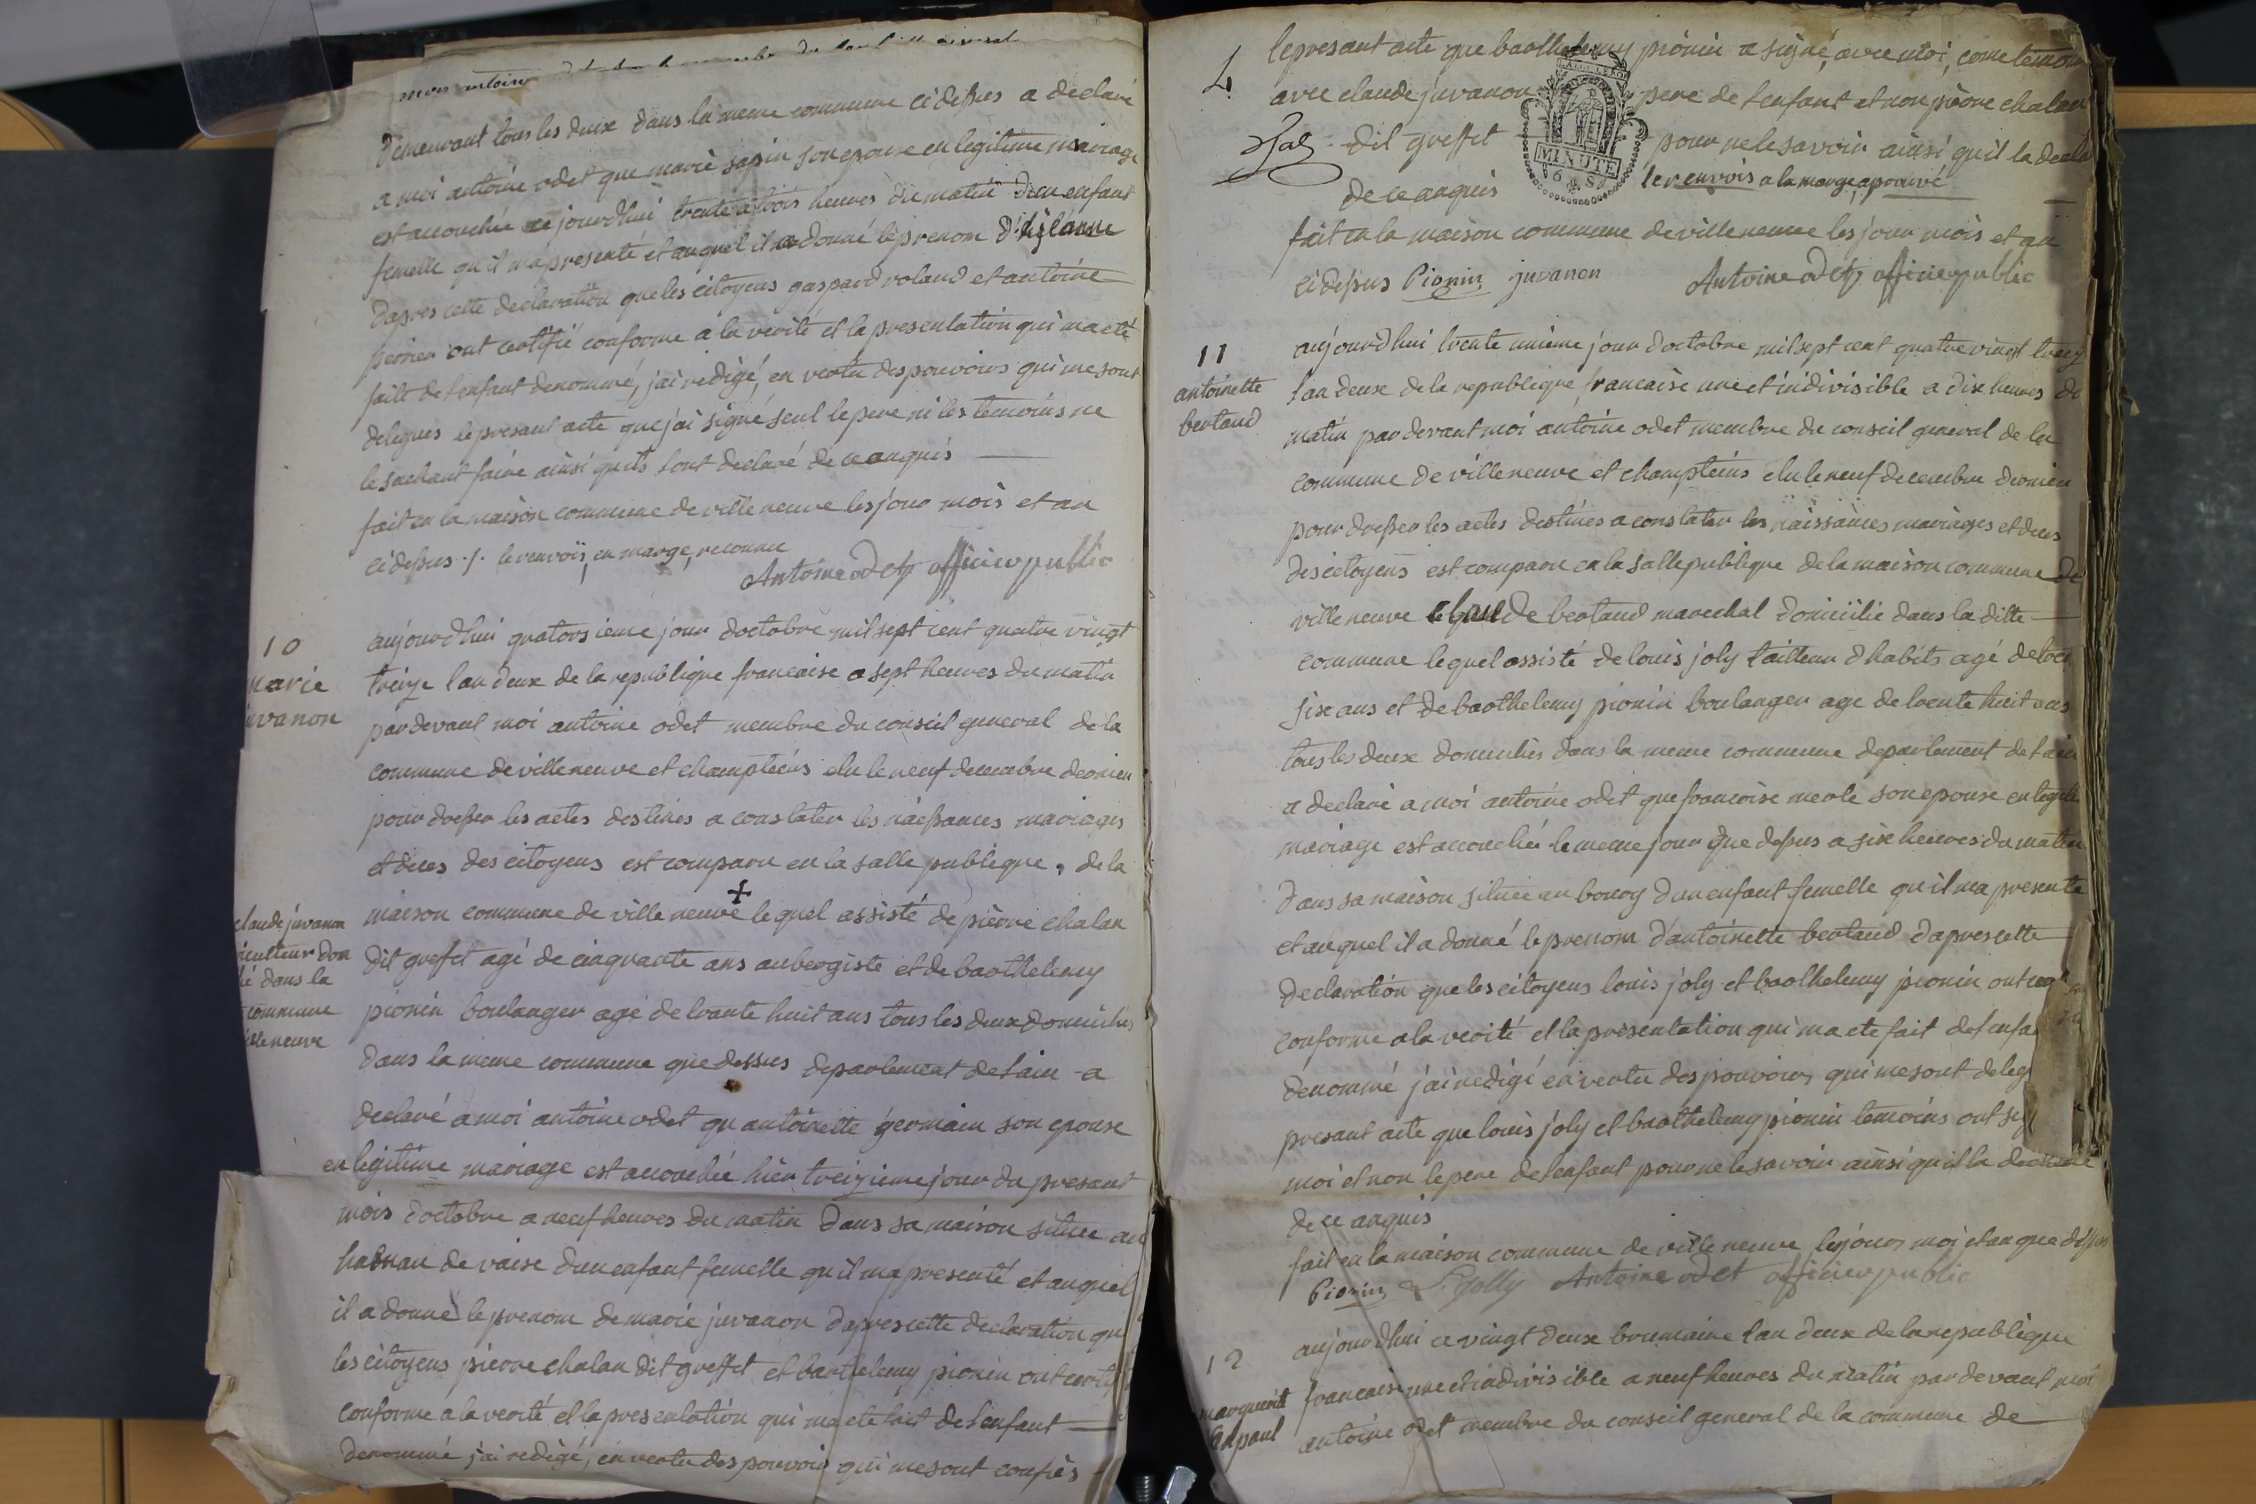 demeurant tous les deux dans la meme commune ci depus a declaré
a moi antoine odet que marie sapin son epouse en legitime mairage
est accouchée ce jourdhui trente a trois heures du matin dun enfant
femelle qu'il ma presenté et auquel il a donné le prenom
dapres cette declaration que les citoyens gaspard roland et antoine
perrier ont certifié conforme a la verité et la presentation qui ma eté
faite de lenfant denommé, j'ai redigé, en vertu des pouvoirs qui me sont
delegués le presant acte que j'ai signé seul le pere ni les temoins ne
le sachant faire ainsi quils lont declaré de ce anquis
fait en la maison commune de ville neuve les jour mois et an
ci depus ./. le renvoÿ, en marge, reconnu
Antoine odet officier public
10
marie
juvanon
aujourdhui quatorsieme jour doctobre mil sept cent quatre vingt
treize lan deux de la republique francaise a sept heures du matin
pardevant moi antoine odet membre du conseil general de la
commune de ville neuve et chanpteins elu le neuf decembre dernier
pour dresser les actes destinés a constater les naissances mariages
et deces des citoyens est comparu en la salle publique, de la
+
maison commune de ville neuve lequel assisté de pierre chalan
dit greffet agé de cinquante ans aubergiste et de barthelemy
pionin boulanger agé de trante huit ans tous les deux domicilies
dans la meme commune que dessus departement de lain a
claude juvanon
dans la
commune
declaré a moi antoine odet qu antoinette germain son epouse
en legitime mariage est accouchée hier treizieme jour du presant
mois doctobre a neuf heures du matin dans sa maison situee au
hameau de vaise dun enfant femelle quil ma presenté et auquel
il a donné le prenom de marie juvanon dapres cette declaration que
les citoyens pierre chalan dit greffet et barthelemy pionin ont certif
conforme a la verité et la presentation qui ma ete fait de lenfant
denommé j'ai redigé, en vertu des pouvoirs qui me sont confiés
4
le presant acte que barthelemy pionin a signé, avec moi, come temoin
avec claude juvanon pere de lenfant et non pierre chalan
dit greffet pour ne le savoir ainsi quil la decla
MINUTE
de ce anquis le renvois a la marge, aprouvé
fait en la maison commune de ville neuve les jour mois et an
ci depus Pionin juvanon Antoine odet officier public
11
antoinette
bertaud
aujourdhui trente unieme jour doctobre mil sept cent quatre vingt treize
lan deux de la republique francaise une et indivisible a dix heures du
matin par devant moi antoine odet membre du conseil general de la
commune de ville neuve et champteins elu le neuf decembre dernier
pour dresser les actes destinés a constater les naissances mariages et deces
des citoyens est comparu en la salle publique de la maison commune de
ville neuve claude bertaud marechal domicilié dans la ditte
commune lequel assisté de louis joly tailleur dhabits agé de
six ans et de barthelemy pionin boulanger age de trente huit ans
tous les deux domicilies dans la meme commune departement de lain
a declaré a moi antoine odet que francoise merle son epouse en legite
mariage est accouchée le meme jour que depus a six heures du matin
dans sa maison situee au bourg dun enfant femelle qu il ma presenté
et auquel il a donné le prenom d'antoinette bertaud dapres cette
declaration que les citoyens louis joly et barthelemy pionin ont
conforme a la verité et la presentation qui ma ete fait de lenfa
denommé j'ai redigé en vertu des pouvoirs qui me sont deleg
presant acte que louis joly et barthelemy pionin temoins ont sig
moi et non le pere de lenfant pour ne le savoir ainsi quil la
de ce anquis
fait en la maison commune de ville neuve les jour moi et an que depus
Pionin L Jolly Antoine odet officier public
12
marguerite
aujourdhui ce vingt deux brumaire lan deux de la republique
francaise une et indivisible a neuf heures du matin pardevant moi
antoine odet membre du conseil general de la commune de